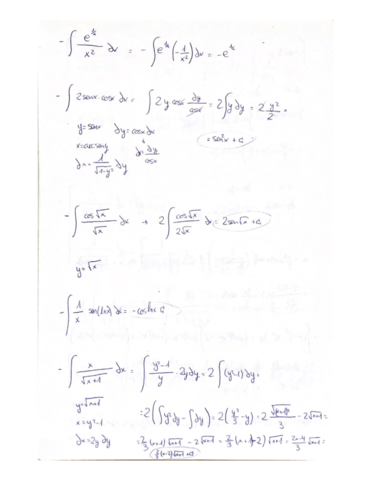 - ∫ e^(1/x)/x² dx = - ∫ e^(1/x) (-1/x²) dx = -e^(1/x)
- ∫ 2 senx cosx dx = ∫ 2y cosx dy/cosx = 2 ∫ y dy = 2 y²/2 =
y = senx dy = cosx dx = sen²x + c
x = arcseny dx = dy/cosx
dx = 1/√(1-y²) dy
- ∫ cos√x/√x dx → 2 ∫ cos√x/2√x dx = 2sen√x + c
y = √x
- ∫ 1/x sen(lnx) dx = -coslnx
- ∫ x/√(x+1) dx = ∫ (y²-1)/y · 2y dy = 2 ∫ (y²-1) dy =
y = √(x+1) = 2 (∫ y² dy - ∫ dy) = 2 (y³/3 - y) = 2 √(x+1)³/3 - 2√(x+1) =
x = y²-1
dx = 2y dy = 2/3 (x+1) √(x+1) - 2√(x+1) =